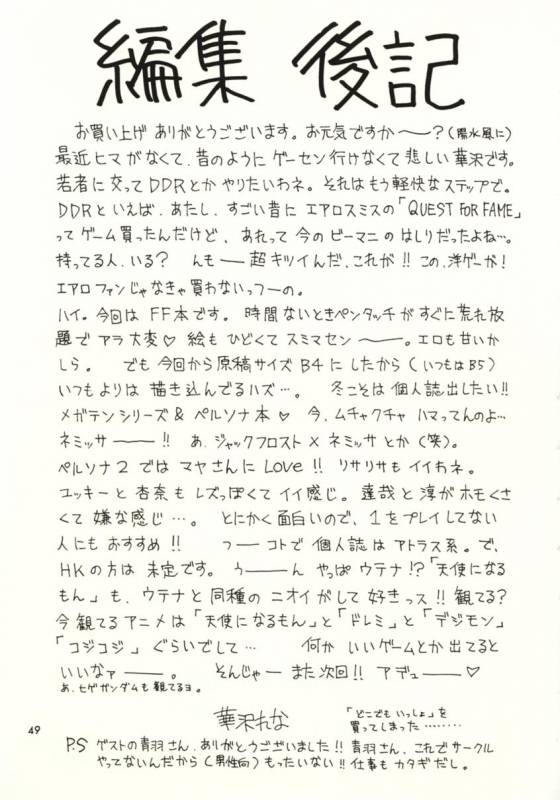 編集 後記
お買い上げ ありがとうございます。お元気ですか〜〜?(陽水風に)
最近ヒマがなくて、昔のように ゲーセン行けなくて 悲しい 華沢です。
若者に交って DDRとか やりたいわネ。それはもう 軽快なステップで。
DDRといえば、あたし、すごい昔に エアロスミスの「QUEST FOR FAME」
ってゲーム買ったんだけど、あれって 今の ビーマニの はしりだったよね…。
持ってる人、いる? んも――超キツイんだ、これが!! この、洋ゲーが!
エアロファンじゃなきゃ 買わないっつーの。
ハイ。今回は FF本です。 時間ないとき ペンタッチが すぐに 荒れ放
題で アラ大変♡ 絵も ひどくて スミマセン――。エロも甘いか
しら。 でも 今回から 原稿サイズ B4に したから(いつもはB5)
いつもよりは 描き込んでるハズ…。 冬こそは 個人誌出したい!!
メガテンシリーズ & ペルソナ本♡ 今、ムチャクチャ ハマってんのよ…
ネミッサ――!! あ、ジャックフロスト×ネミッサとか(笑)。
ペルソナ2 では マヤさんに Love!! リサリサも イイわネ。
ユッキーと 杏奈も レズっぽくて イイ感じ。達哉と 淳が ホモくさ
くて 嫌な感じ…。 とにかく面白いので、1をプレイしてない
人にも おすすめ!! っ――コトで 個人誌は アトラス系。で、
HKの方は 未定です。 う――ん やっぱ ウテナ!?「天使になる
もん」も、ウテナと 同種の ニオイがして 好きっス!! 観てる?
今 観てるアニメは「天使になるもん」と「ドレミ」と「デジモン」
「コジコジ」ぐらいでして… 何か いいゲームとか 出てると
いいなァ――。 そんじゃ― また次回!! アデュ――♡
あ、ヒゲガンダムも 観てるヨ。
華沢れな
「どこでもいっしょ」を
買ってしまった………
49
P.S ゲストの青羽さん、ありがとうございました!! 青羽さん、これでサークル
やってないんだから(男性向)もったいない!! 仕事も カタギだし。